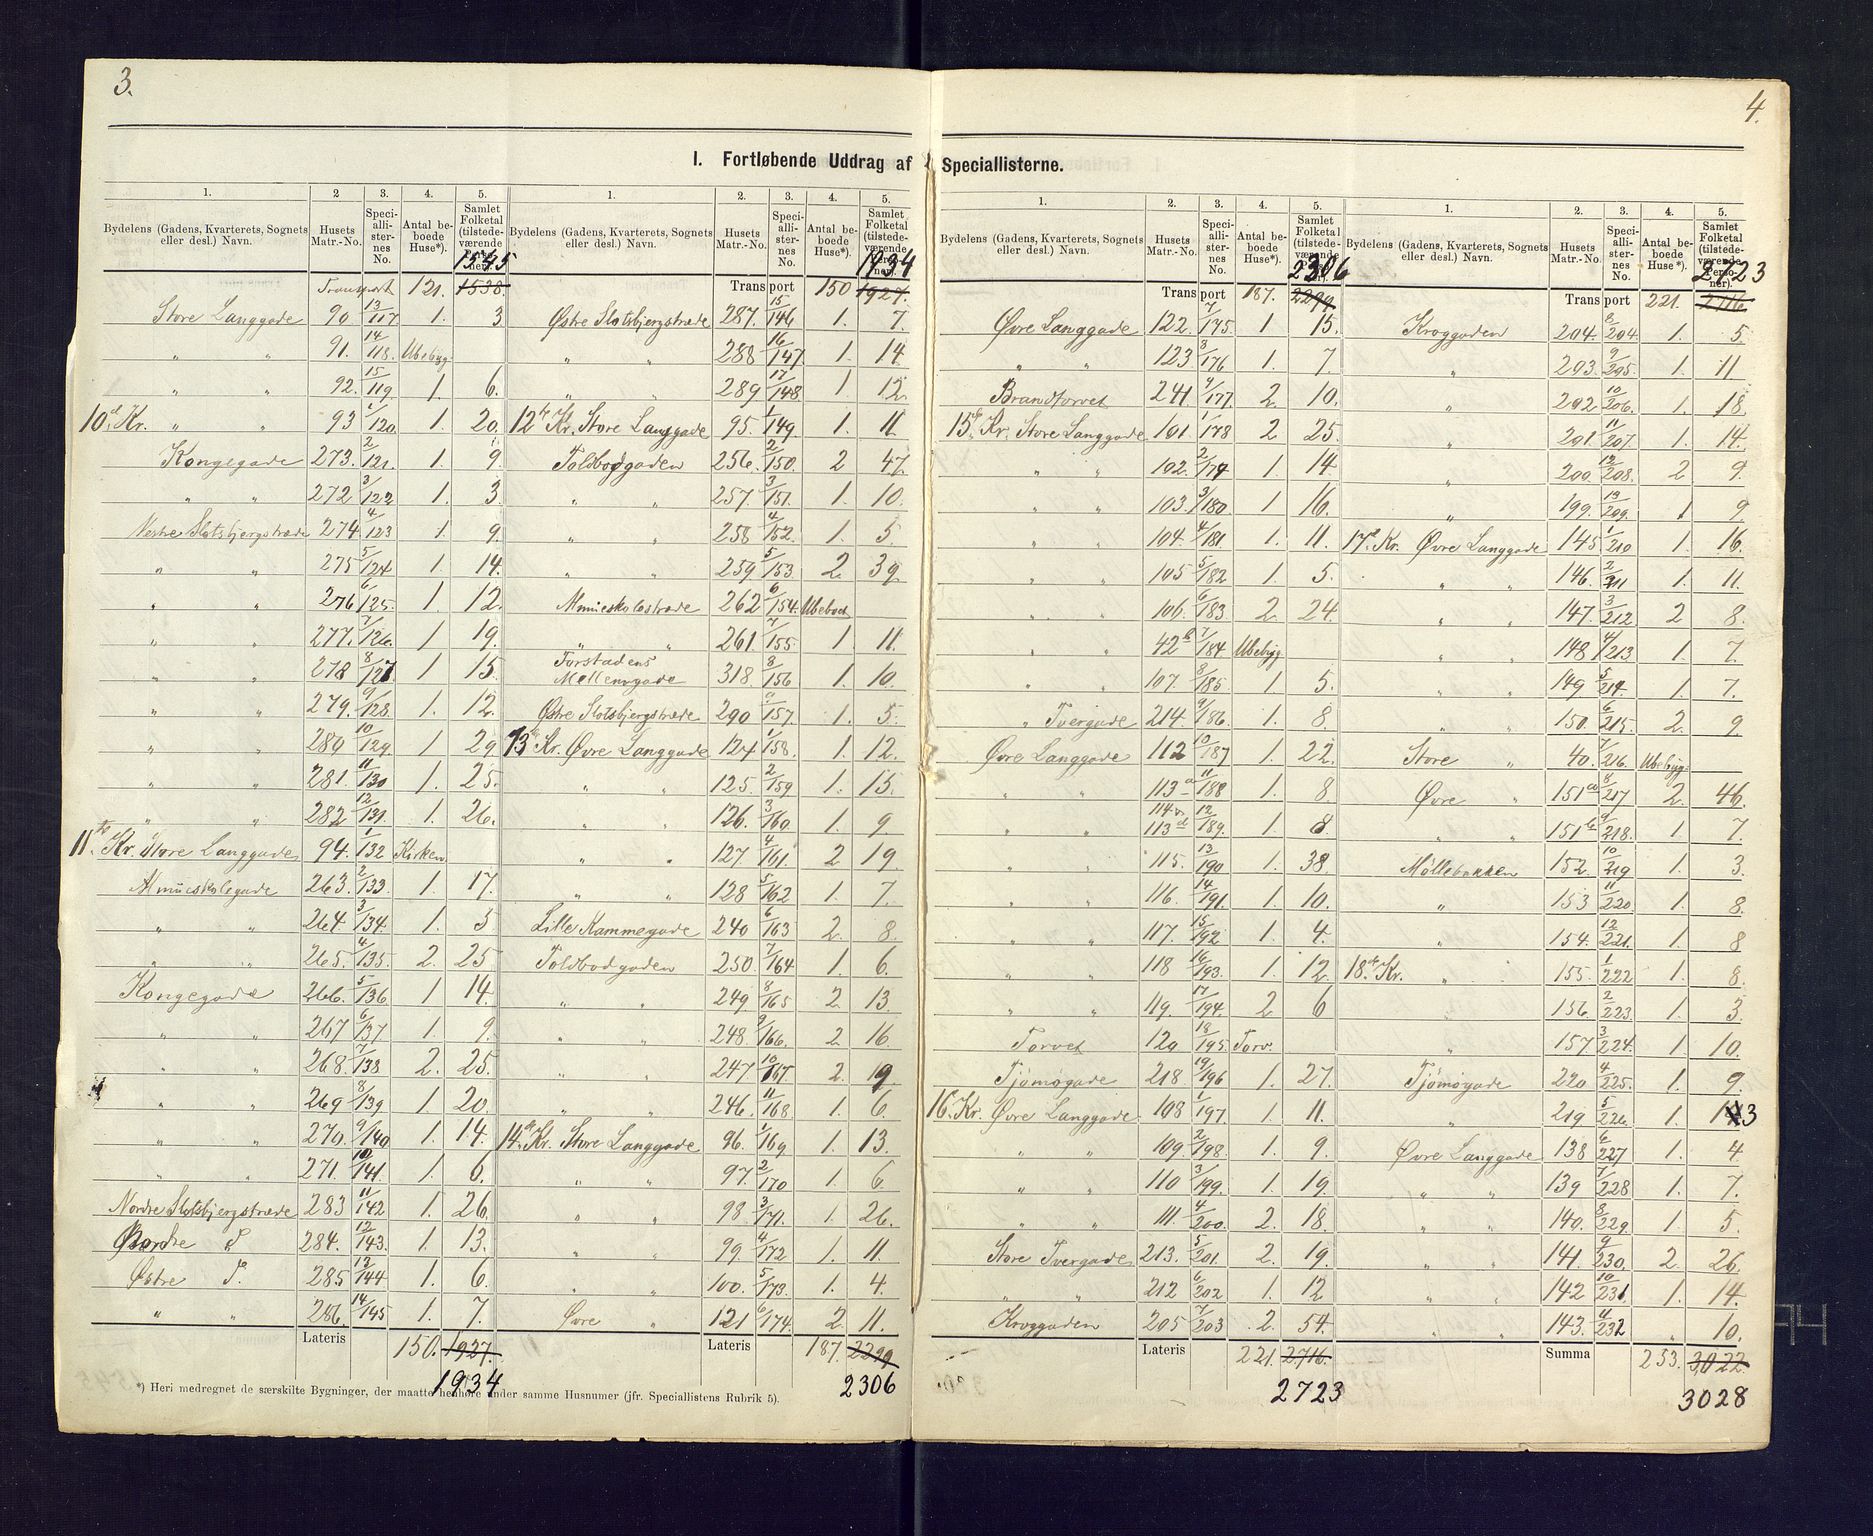 3.
I. Fortløbende Uddrag af
1. 2 3. 4. 5.
Bydelens (Gadens, Kvarterets, Sognets eller desl.) Navn. Husets Matr.-No. Speciallisternes No. Antal beboede Huse*). Samlet Folketal (tilstedeværende Personer).
1545
Transport 121. 1538.
Store Langgade 90. 13/117 1. 3
" " 91. 14/118. Ubebyg
" " 92. 15/119. 1. 6.
10d. Kr. " " 93 1/120. 1. 20.
Kongegade 273. 2/121. 1. 9.
" " 272 3/122 1. 3.
Vestre Slotsbjergstræde 274 4/123 1. 9.
" " 275 5/124 1. 14.
" " 276 6/125. 1. 12.
" " 277. 7/126. 1 19.
" " 278 8/127 1 15.
" " 279. 9/128. 1. 12
" " 280 10/129. 1 29
" " 281. 11/130 1. 25.
" " 282 12/131. 1. 26.
11te Kr. Store Langgade 94. 1/132 Kirken
Almueskolegade 263. 2/133. 1. 17.
" " 264. 3/134. 1. 5
" " 265. 4/135. 2. 25
Kongegade 266. 5/136 1 14.
" " 267 6/137 1. 9.
" " 268. 7/138 2. 25.
" " 269 8/139 1. 20.
" " 270. 9/140 1. 14.
" " 271. 10/141. 1. 6.
Nordre Slotsbjergstræde 283 11/142 1. 26.
S. 284. 12/143. 1. 13.
Østre S. 285 13/144 1. 6.
" " 286. 14/145 1. 7.
Lateris 150. 1927.
1934
*) Heri medregnet de særskilte Bygninger, der maatte henhøre under samme Husnumer (jfr. Speciallistens Rubrik 5).
1. 2. 3. 4. 5.
Bydelens (Gadens, Kvarterets, Sognets eller desl.) Navn. Husets Matr.-No. Speciallisternes No. Antal beboede Huse*). Samlet Folketal (tilstedeværende Personer).
1934
Transport 150 1927.
Østre Slotsbjergstræde 287. 15/146 1. 7.
" " 288 16/147 1. 14
" " 289 17/148 1. 12.
12te Kr. Store Langgade 95. 1/149. 1. 11.
Toldbodgaden 256. 2/150. 2 47.
" " 257. 3/151. 1. 10.
" " 258 4/152. 1. 5.
" " 259 5/153 2. 39
Almueskolestræde 262 6/154. Ubeboet
" " 261 7/155 1 11.
Forstadens Møllemgade 318. 8/156 1. 10.
Østre Slotsbjergstræde 290 9/157. 1. 5.
13de Kr. Øvre Langgade 124 1/158. 1. 12.
" " 125. 2/159 1. 15.
" " 126. 3/160 1. 9.
" " 127 4/161 2 19
" " 128 5/162 1. 7.
Lille Kammegade 240 6/163 2. 8.
Toldbodgaden 250. 7/164 1. 6.
" " 249. 8/165 2 13.
" " 248. 9/166. 2 16
" " 247 10/167. 2. 19.
" " 246. 11/168 1. 6.
14de Kr. Store Langgade 96. 1/169 1. 13.
" " 97. 2/170 1. 6
" " 98. 3/171. 1. 26.
" " 99. 4/172 1. 11.
" " 100. 5/173. 1. 4.
Øvre " 121 6/174. 2. 11.
Lateris 187. 2299
2306
4.
Speciallisterne.
1. 2. 3. 4. 5.
Bydelens (Gadens, Kvarterets, Sognets eller desl.) Navn. Husets Matr.-No. Speciallisternes No. Antal beboede Huse*). Samlet Folketal (tilstedeværende Personer).
2306
Transport 187. 2299
Øvre Langgade 122. 7/175. 1 15.
" " 123 8/176 1. 7.
Brandtorvet 241 9/177. 2 10.
15de Kr. Store Langgade 101 1/178 2 25.
" " 102. 2/179 1. 14
" " 103. 3/180 1 16.
" " 104. 4/181 1. 11.
" " 105 5/182 1. 5.
" " 106. 6/183 2 24.
" " 42b 7/184 Ubebyg
" " 107. 8/185. 1 5.
" Tvergade 214. 9/186. 1. 8.
Øvre Langgade 112 10/187 1. 22.
" " 113a 11/188 1. 8
" " 114 113d 12/189. 1. 8
" " 115. 13/190 1. 38.
" " 116. 14/191. 1. 10.
" " 117. 15/192 1 4.
" " 118 16/193. 1. 12
" " 119. 17/194. 2 6
Torvet 120 18/195. Torv.
Tjømøgade 218 19/196 1. 27.
16de Kr. Øvre Langgade 108 1/197. 1. 11.
" " 109 2/198. 1. 9.
" " 110 3/199. 1. 19.
" " 111. 4/200. 2. 18.
Store Tvergade 213. 5/201. 2. 19.
" " 212 6/202 1. 12
Kroggaden 205 7/203 2. 54.
Lateris 221. 2716.
2723
1. 2. 3. 4. 5.
Bydelens (Gadens, Kvarterets, Sognets eller desl.) Navn. Husets Matr.-No. Speciallisternes No. Antal beboede Huse*). Samlet Folketal (tilstedeværende Personer).
2723
Transport 221. 2716
Kroggaden 204. 8/204. 1. 5
" 203. 9/205. 1. 11
" 202 10/206. 1. 18
" 201. 11/207 1. 14.
" 200. 12/208. 2 9.
" 199. 13/209. 1 9
17de Kr. Øvre Langgade 145 1/210 1. 16.
" " 146. 2/211 1. 11.
" " 147. 3/212 2 8.
" " 148 4/213 1. 7.
" " 149 5/214. 1. 7.
" " 150. 6/215. 2. 9
Store " 40. 7/216. Ubebyg.
Øvre " 151a 8/217 2. 46.
" " 151b 9/218. 1. 7.
Møllebakken 152. 10/219 1. 3.
" 153 11/220. 1. 8.
" 154. 12/221. 1. 8
18de Kr. " 155. 1/222 1. 8.
" 156. 2/223. 1. 3.
" 157. 3/224. 1. 10.
Tjømøgade 220. 4/225. 1. 9.
" 219. 5/226. 1. 13
Øvre Langgade 138 6/227 1. 4
" " 139 7/228 1. 7.
" " 140. 8/229 1. 5.
" " 141. 9/230. 2. 26.
" " 142 10/231 1. 14.
" " 143. 11/232 " 10.
Summa 253. 3022
3028